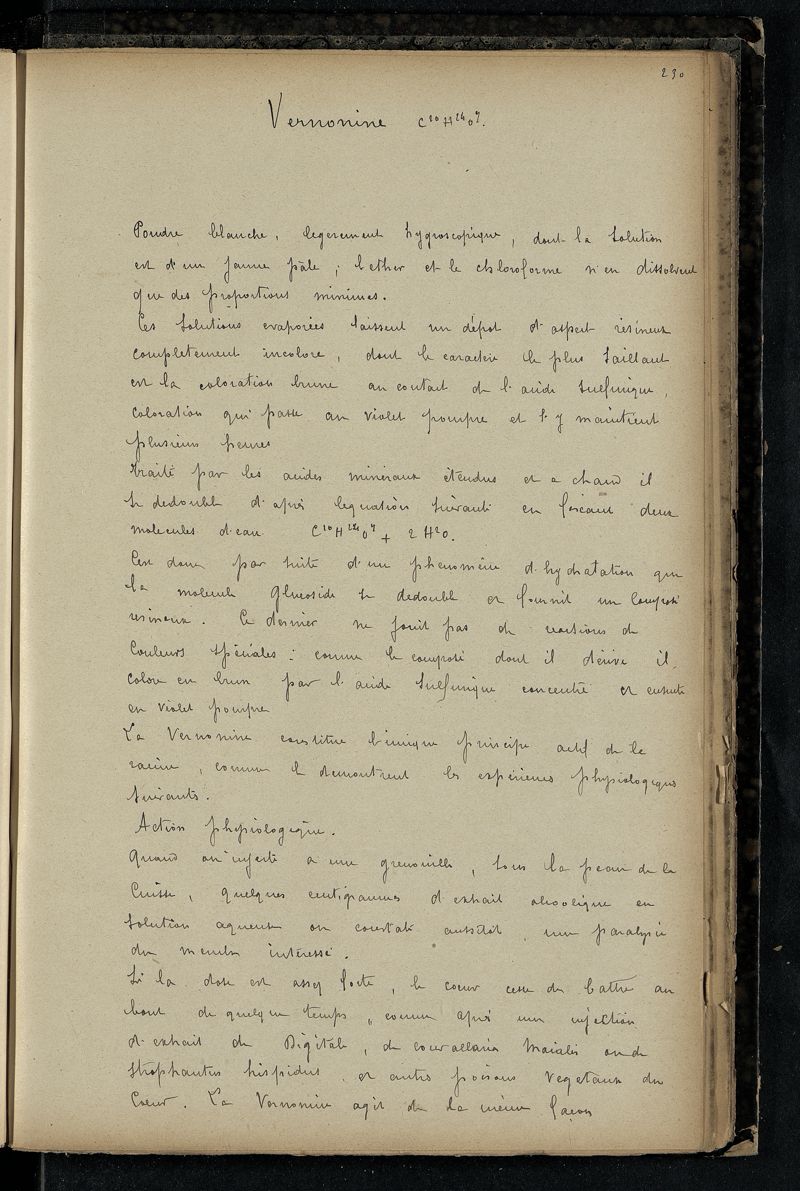 230
Vernonine C¹⁰H²⁴O⁷.
Poudre blanche, legerement hygroscopique, dont la solution
est d'un jaune pâle ; l'ether et le chloroforme n'en dissolvent
que des proportions minimes.
Ces solutions evaporées laissent un dépot d'aspect résineux
completement incolore, dont le caractère le plus saillant
est la coloration brune au contact de l'acide sulfurique,
coloration qui passe au violet pourpre et s'y maintient
plusieurs heures
Traité par les acides minéraux étendus et a chaud il
se dedouble d'après l'equation suivante en fixant deux
molecules d'eau C¹⁰H²⁴O⁷ + 2 H²O.
C'est donc par suite d'un phenomène d'hydratation que
la molecule glucoside se dedouble et fournit un composé
resineux. Ce dernier ne jouit pas de reactions de
couleurs spéciales : comme le composé dont il dérive il
colore en brun par l'acide sulfurique concentré et ensuite
en violet pourpre
La Vernonine constitue l'unique principe actif de la
racine, comme le demontrent les expériences physiologiques
suivantes.
Action physiologique.
Quand on injecte a une grenouille, sous la peau de la
cuisse, quelques centigrammes d'extrait alcoolique en
solution aqueuse on constate aussitôt une paralysie
du membre intéressé.
Si la dose est assez forte, le coeur cesse de battre au
bout de quelque temps, comme après une injection
d'extrait de Digitale, de convallaria Maialis ou de
Strophantus hispidus, et autres poisons vegetaux du
Coeur. La Vernonine agit de la même façon